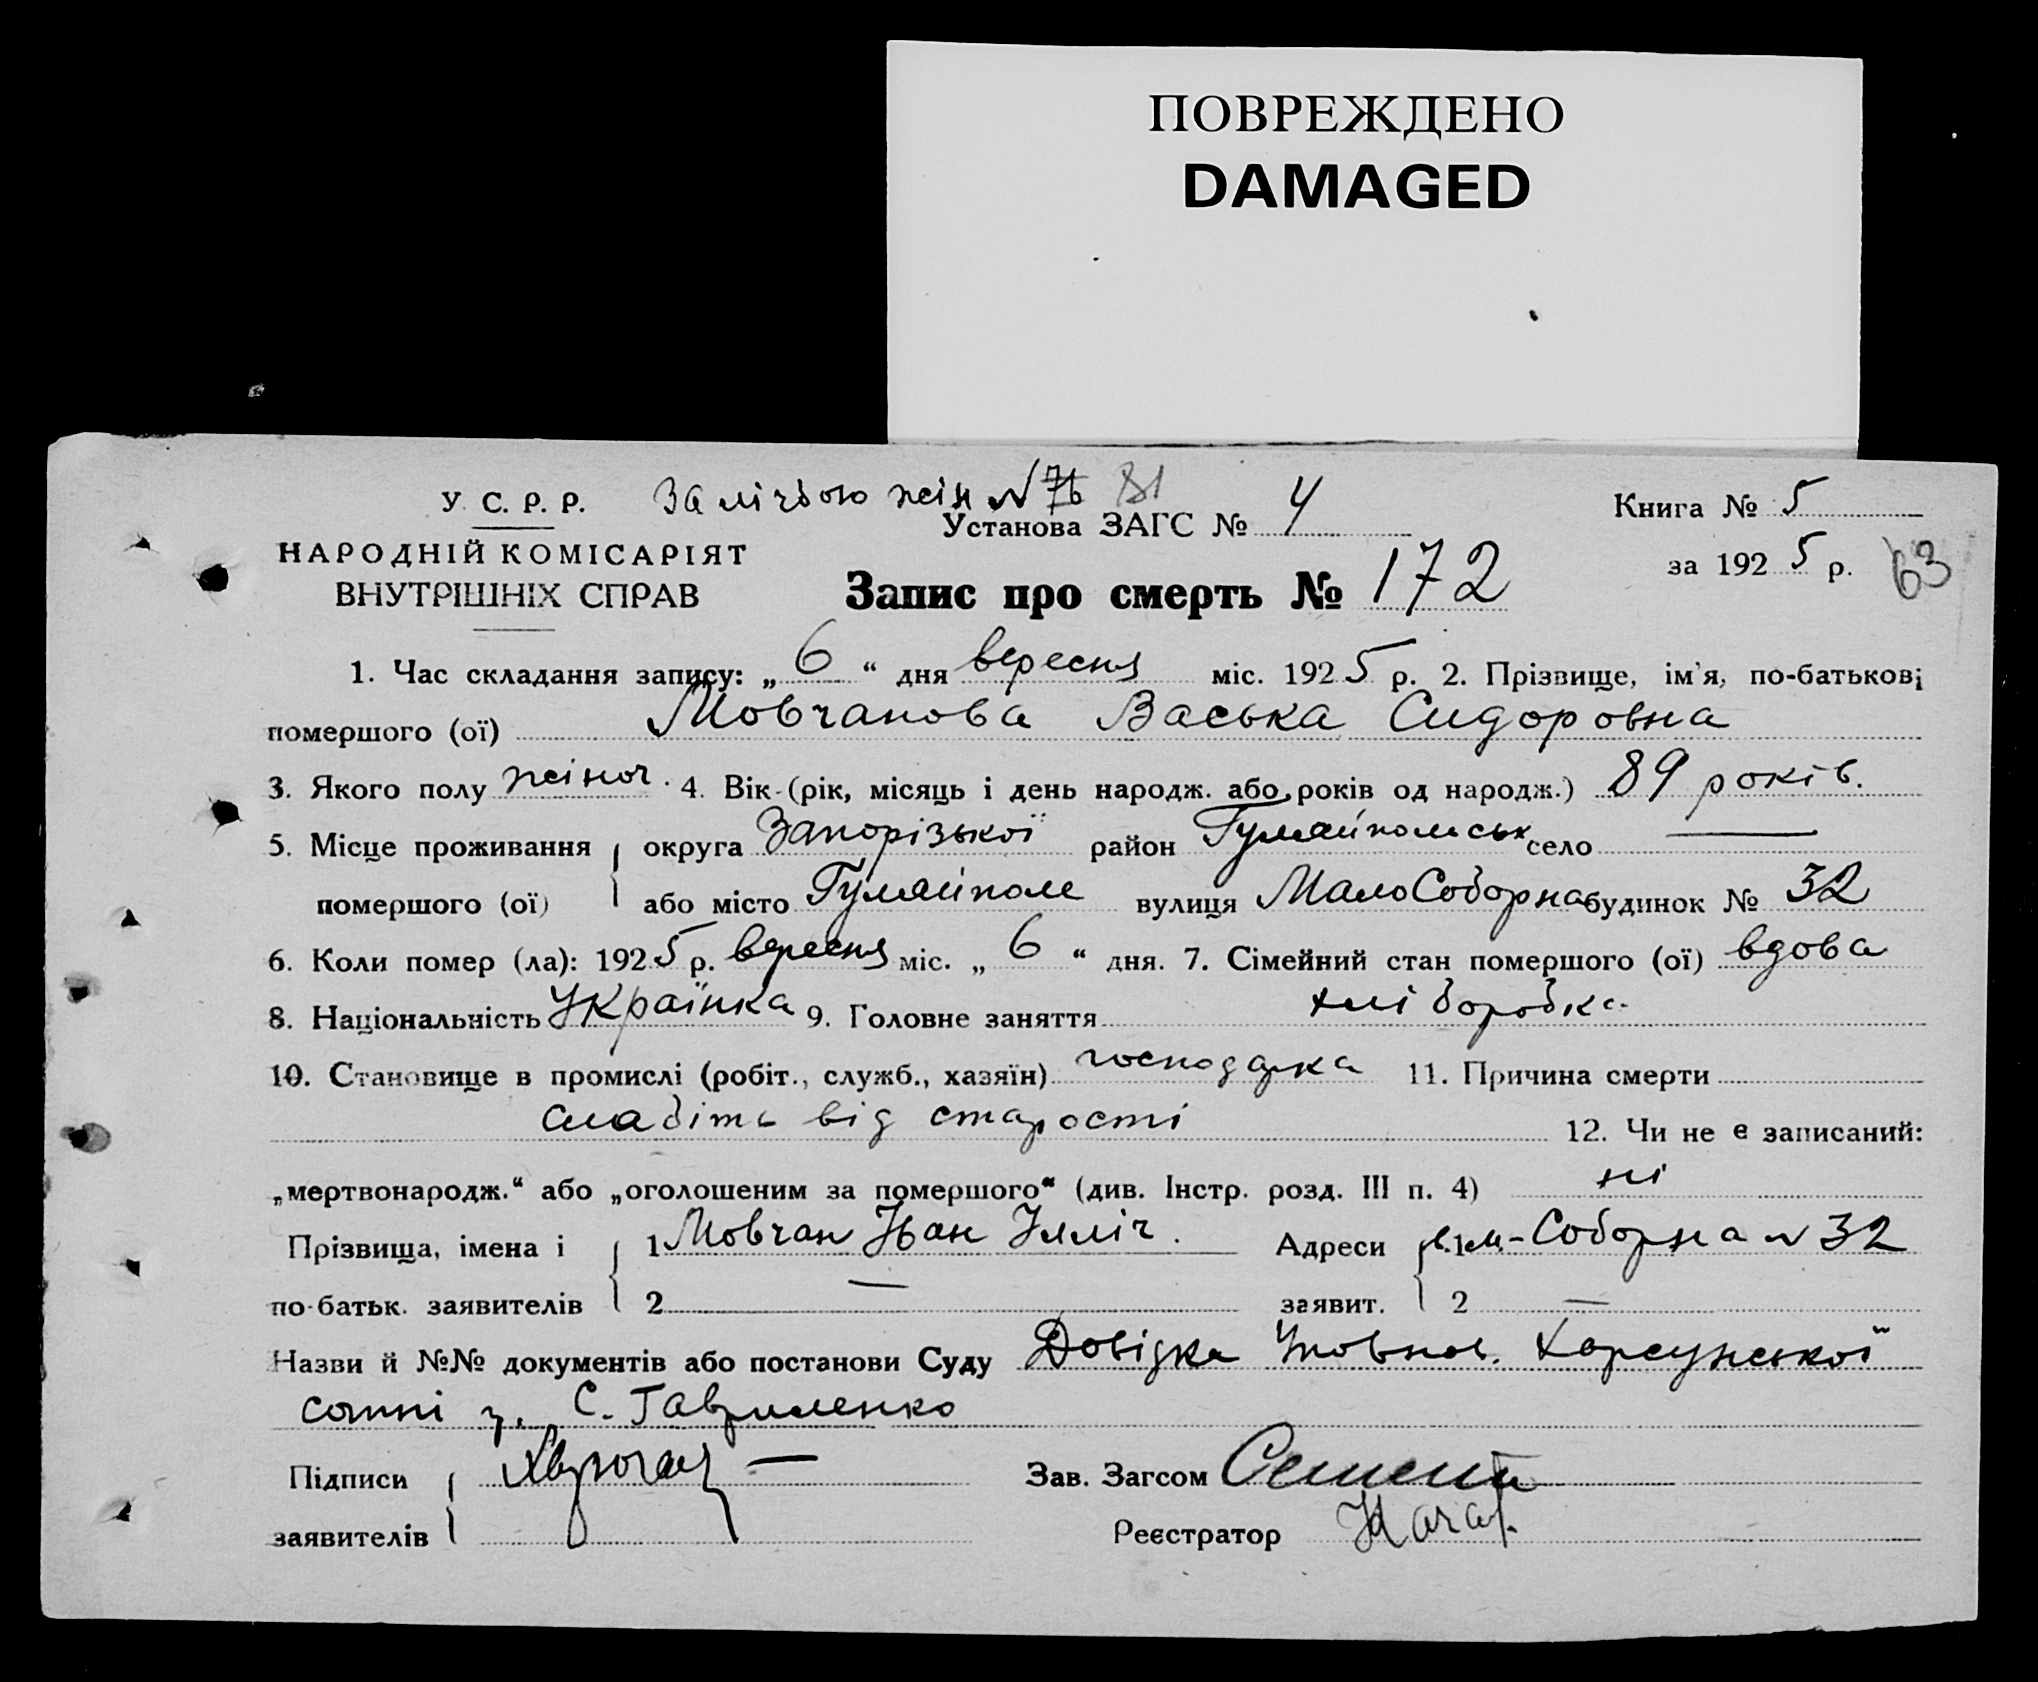 ПОВРЕЖДЕНО
DAMAGED
У. С. Р. Р. За лічбою жін № 76 81
Установа ЗАГС № 4 Книга № 5
НАРОДНІЙ КОМІСАРІЯТ
за 1925 р. 63
ВНУТРІШНІХ СПРАВ Запис про смерть № 172
1. Час складання запису: „6“ дня вересня міс. 1925 р. 2. Прізвище, ім'я, по-батькові
помершого (ої) Мовчанова Васька Сидоровна
3. Якого полу жіноч. 4. Вік (рік, місяць і день народж. або років од народж.) 89 років.
5. Місце проживання округа Запорізької район Гуляйпольськ село —
помершого (ої) або місто Гуляйполе вулиця МалоСоборна будинок № 32
6. Коли помер (ла): 1925 р. вересня міс. „6“ дня. 7. Сімейний стан помершого (ої) вдова
8. Національність Українка 9. Головне заняття хліборобка
10. Становище в промислі (робіт., служб., хазяїн) господарка 11. Причина смерти
слабіть від старості 12. Чи не е записаний:
„мертвонародж.“ або „оголошеним за помершого“ (див. Інстр. розд. III п. 4) ні
Прізвища, імена і 1 Мовчан Іван Ілліч. Адреси 1 в. м.-Соборна № 32
по-батьк. заявителів 2 — заявит. 2 —
Назви й №№ документів або постанови Суду Довідка Уповнов. Харсунської
сотні г. С. Гавриленко
Підписи — Зав. Загсом
заявителів Реєстратор